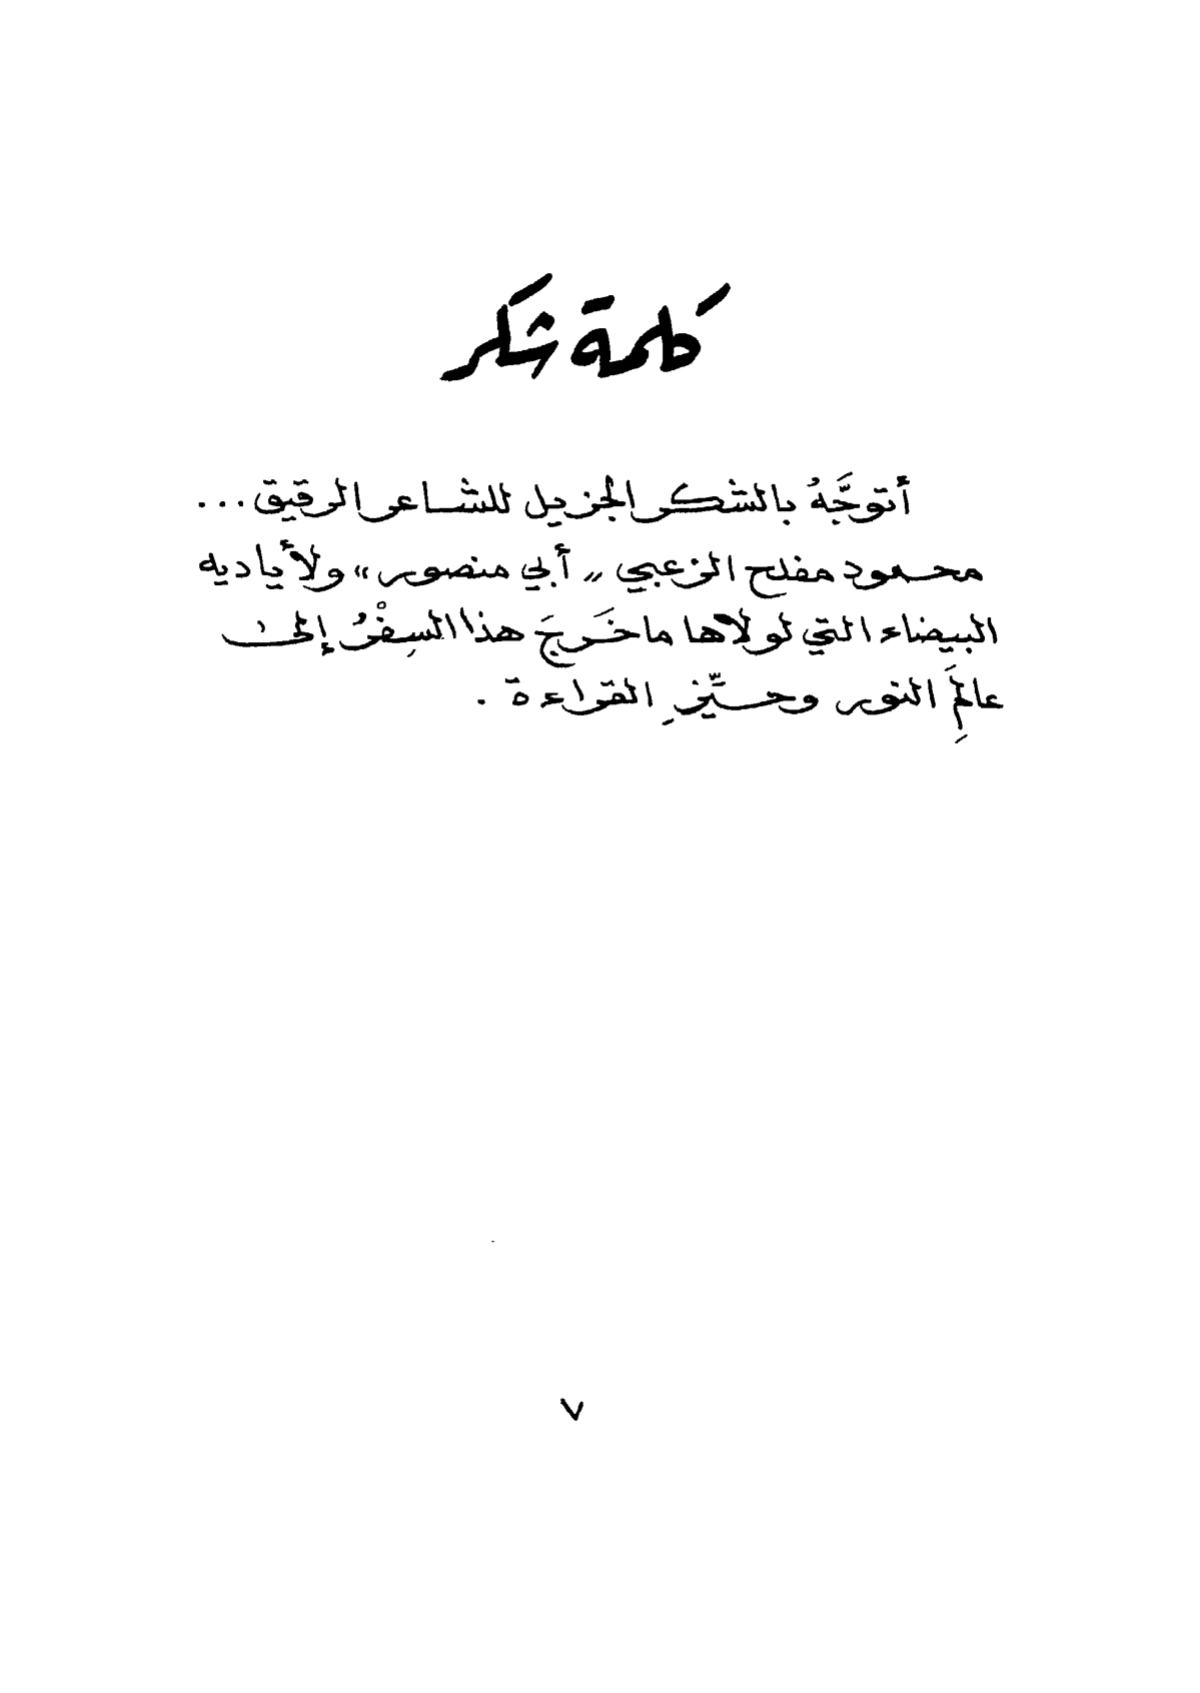 كلمة شكر
أتوجَّهُ بالشكر الجزيل للشاعر الرقيق...
محمود مفلح الزعبي ,, أبي منصور ,, ولأياديه
البيضاء التي لولاها ما خَرجَ هذا السِفْرُ إلى
عالَمِ النور وحيّزِ القراءة .
٧